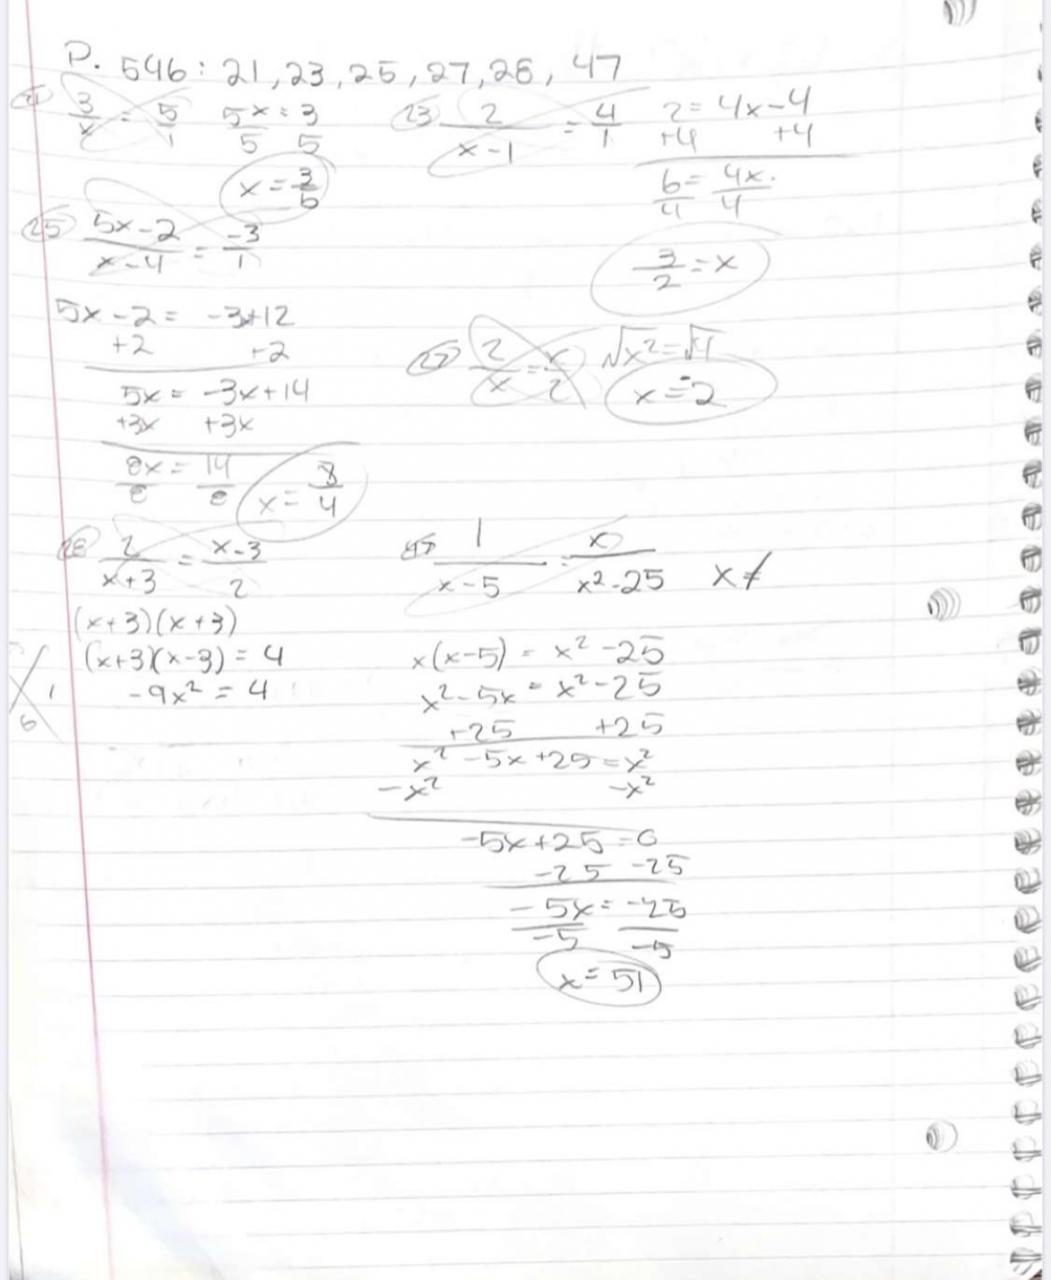 P. 546: 21, 23, 25, 27, 28, 47
21 3/x = 5/1
5x = 3
5 5
x = 3/5
23 2/(x-1) = 4/1
2 = 4x-4
+4 +4
6/4 = 4x/4
3/2 = x
25 (5x-2)/(x-4) = -3/1
5x-2 = -3x+12
+2 +2
5x = -3x+14
+3x +3x
8x/8 = 14/8
27 2/x = x/2
√x² = √4
28 2/(x+3) = (x-3)/2
(x+3)(x+3)
(x+3)(x-3) = 4
-9x² = 4
1
6
1/(x-5) = x/(x²-25) x≠
x(x-5) = x²-25
x²-5x = x²-25
+25 +25
x²-5x+25 = x²
-x² -x²
-5x+25 = 0
-25 -25
-5x = -25
-5 -5